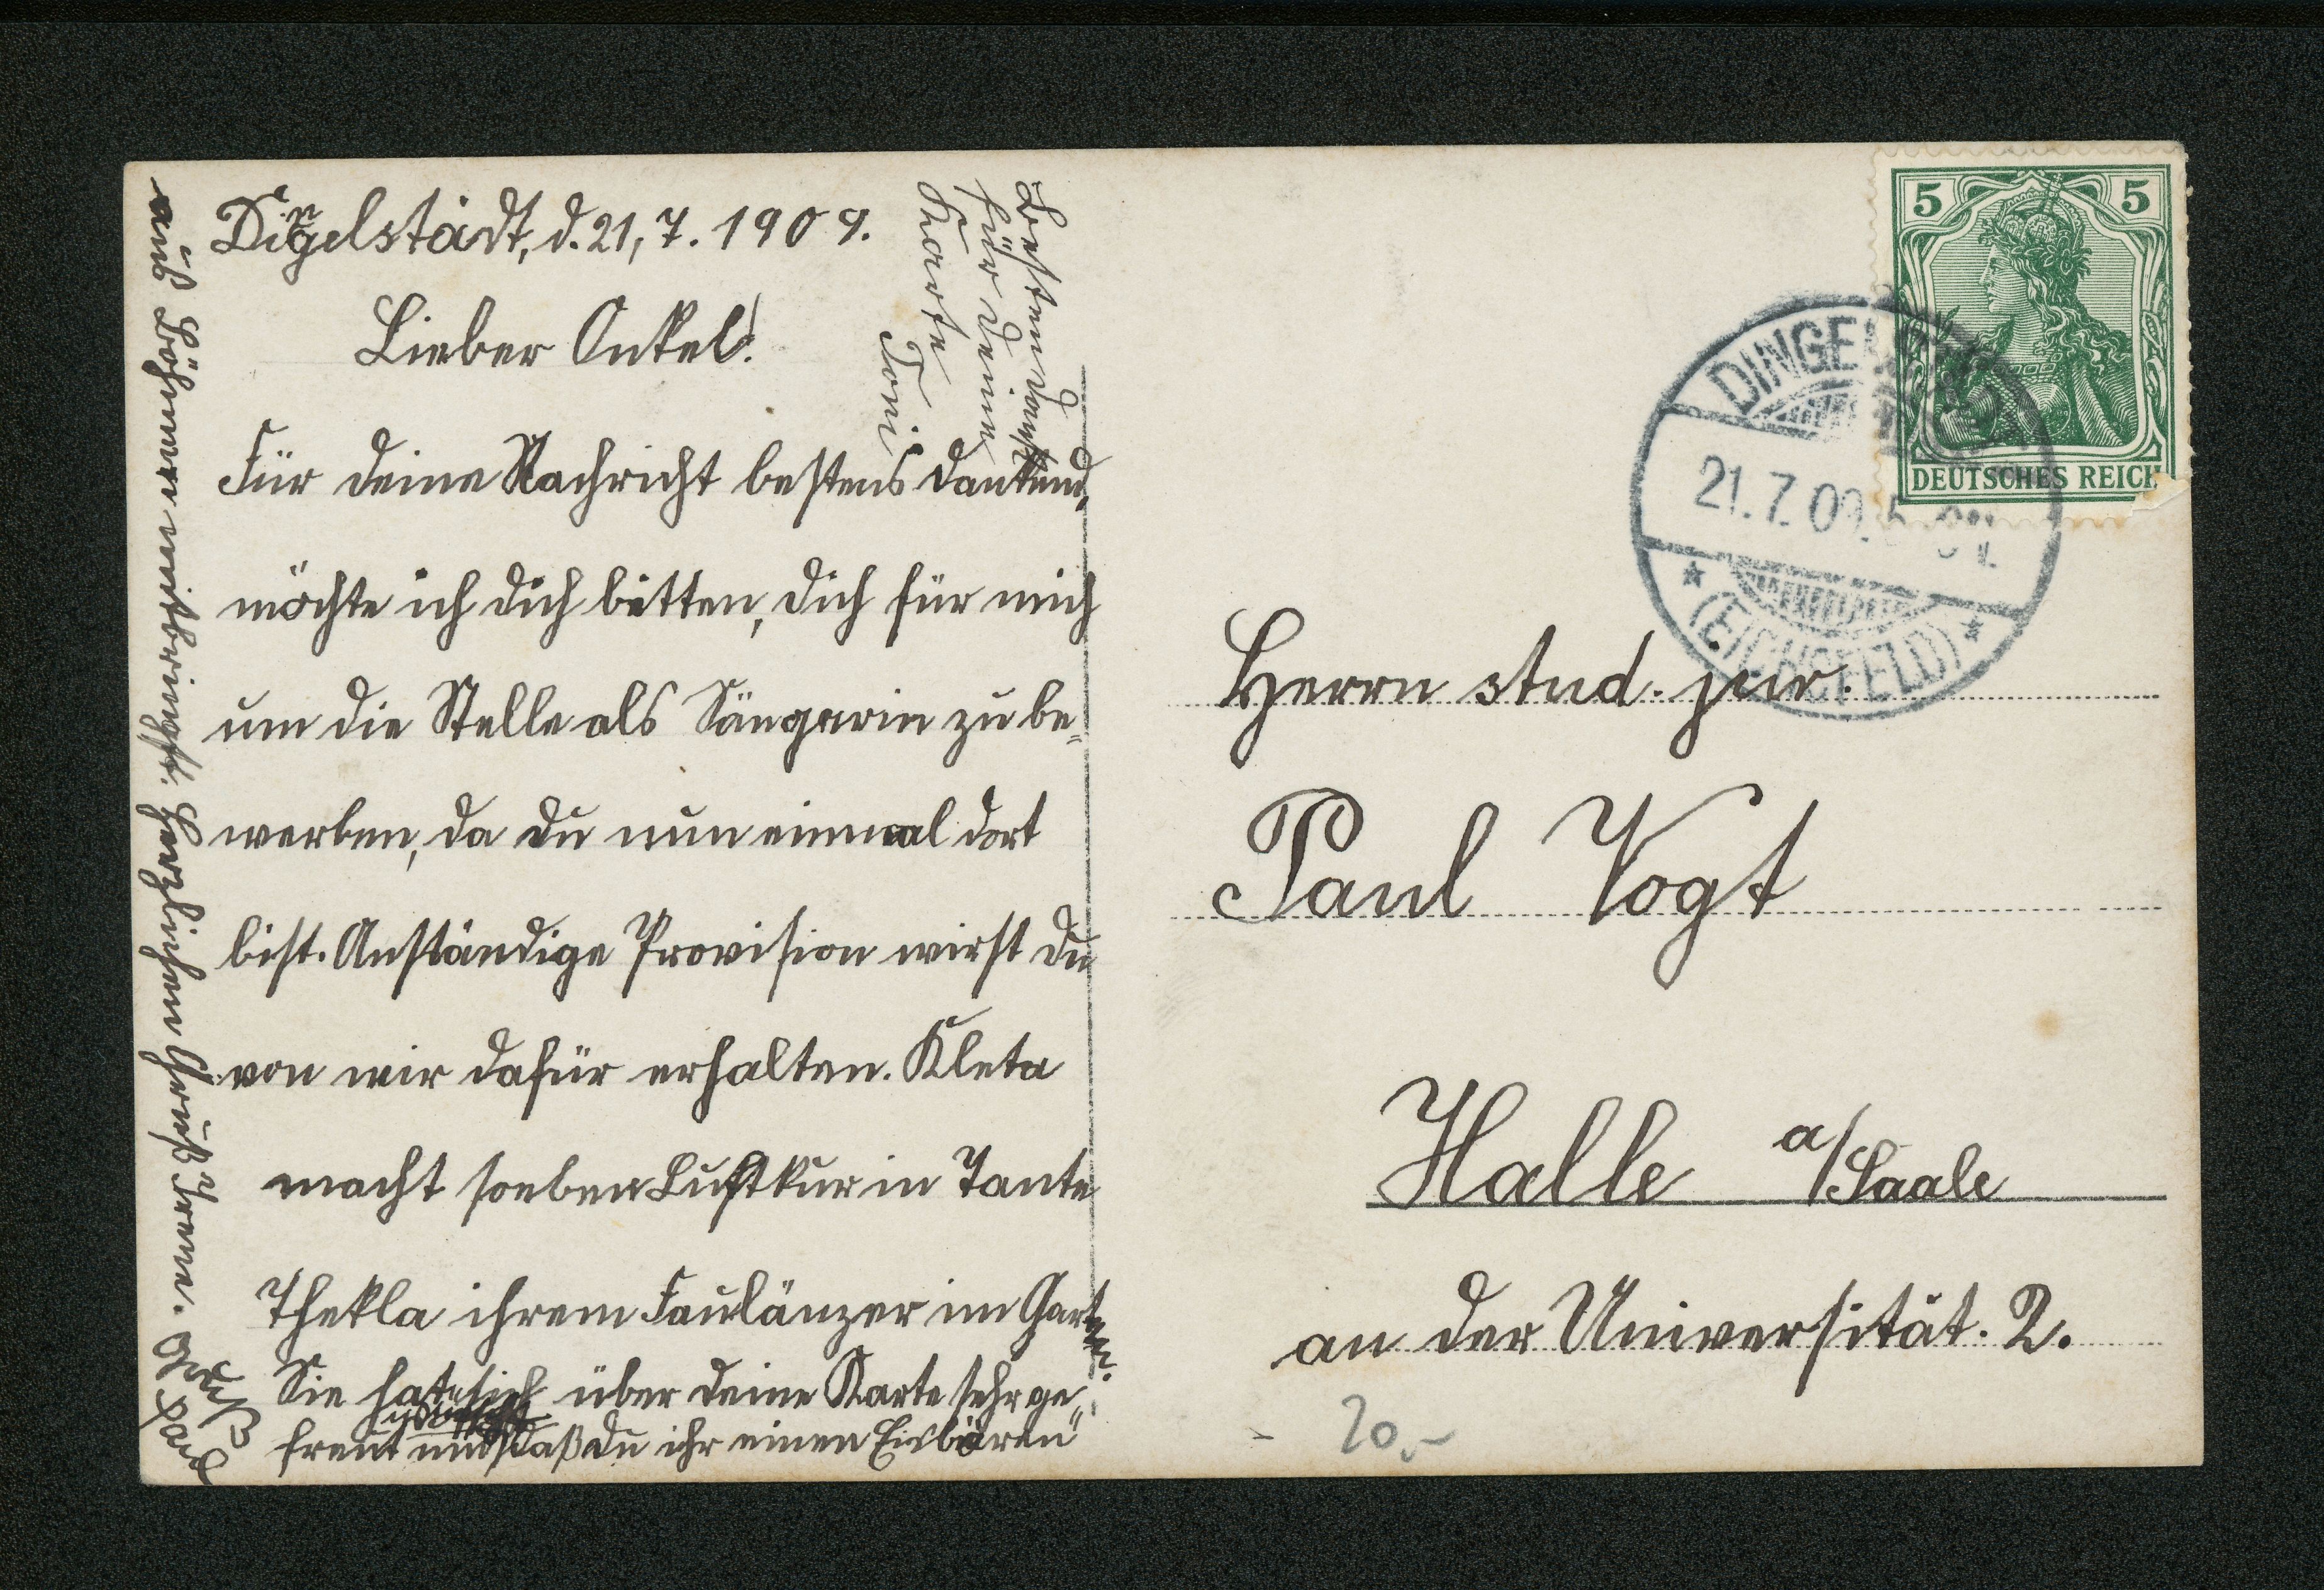 Dingelstädt, d. 21, 7. 1909.
Lieber Onkel!
Für deine Nachricht bestens dankend,
möchte ich dich bitten, dich für mich
um die Stelle als Sängerin zu be-
werben, da du nun einmal dort
bist. Anständige Provision wirst du
von mir dafür erhalten. Kleta
macht soeben Luftkur in Tante
Thekla ihrem Faulänzer im Garten.
Sie hat sich über deine Karte sehr ge-
freut und daß du ihr einen Eisbären
aus Böhmen mitbringst. Herzlichen Gruß Irene.
Gruß
Besten Dank
für deine
Karte
Toni
5 5
DEUTSCHES REICH
DINGELSTÄDT
21.7.09. 5-6N.
(EICHSFELD)
Herrn stud. jur.
Paul Vogt
Halle a/Saale
an der Universität. 2.
20,-